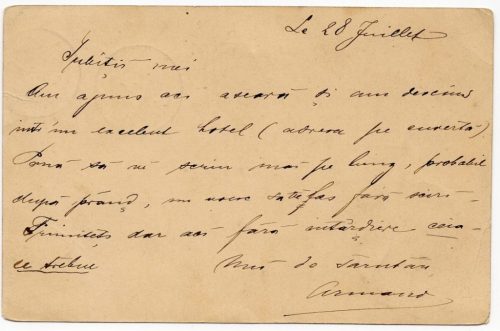 Le 28 Juillet
Iubiții mei
Am ajuns aci aseară și am descins
într'un excelent hotel (adresa pe enveră)
Până să vă scriu mai pe lung, probabil
după prânz, fără
Trimiteți dar aci fără întârziere ceia
ce trebue
Mii de sărutări
Armand